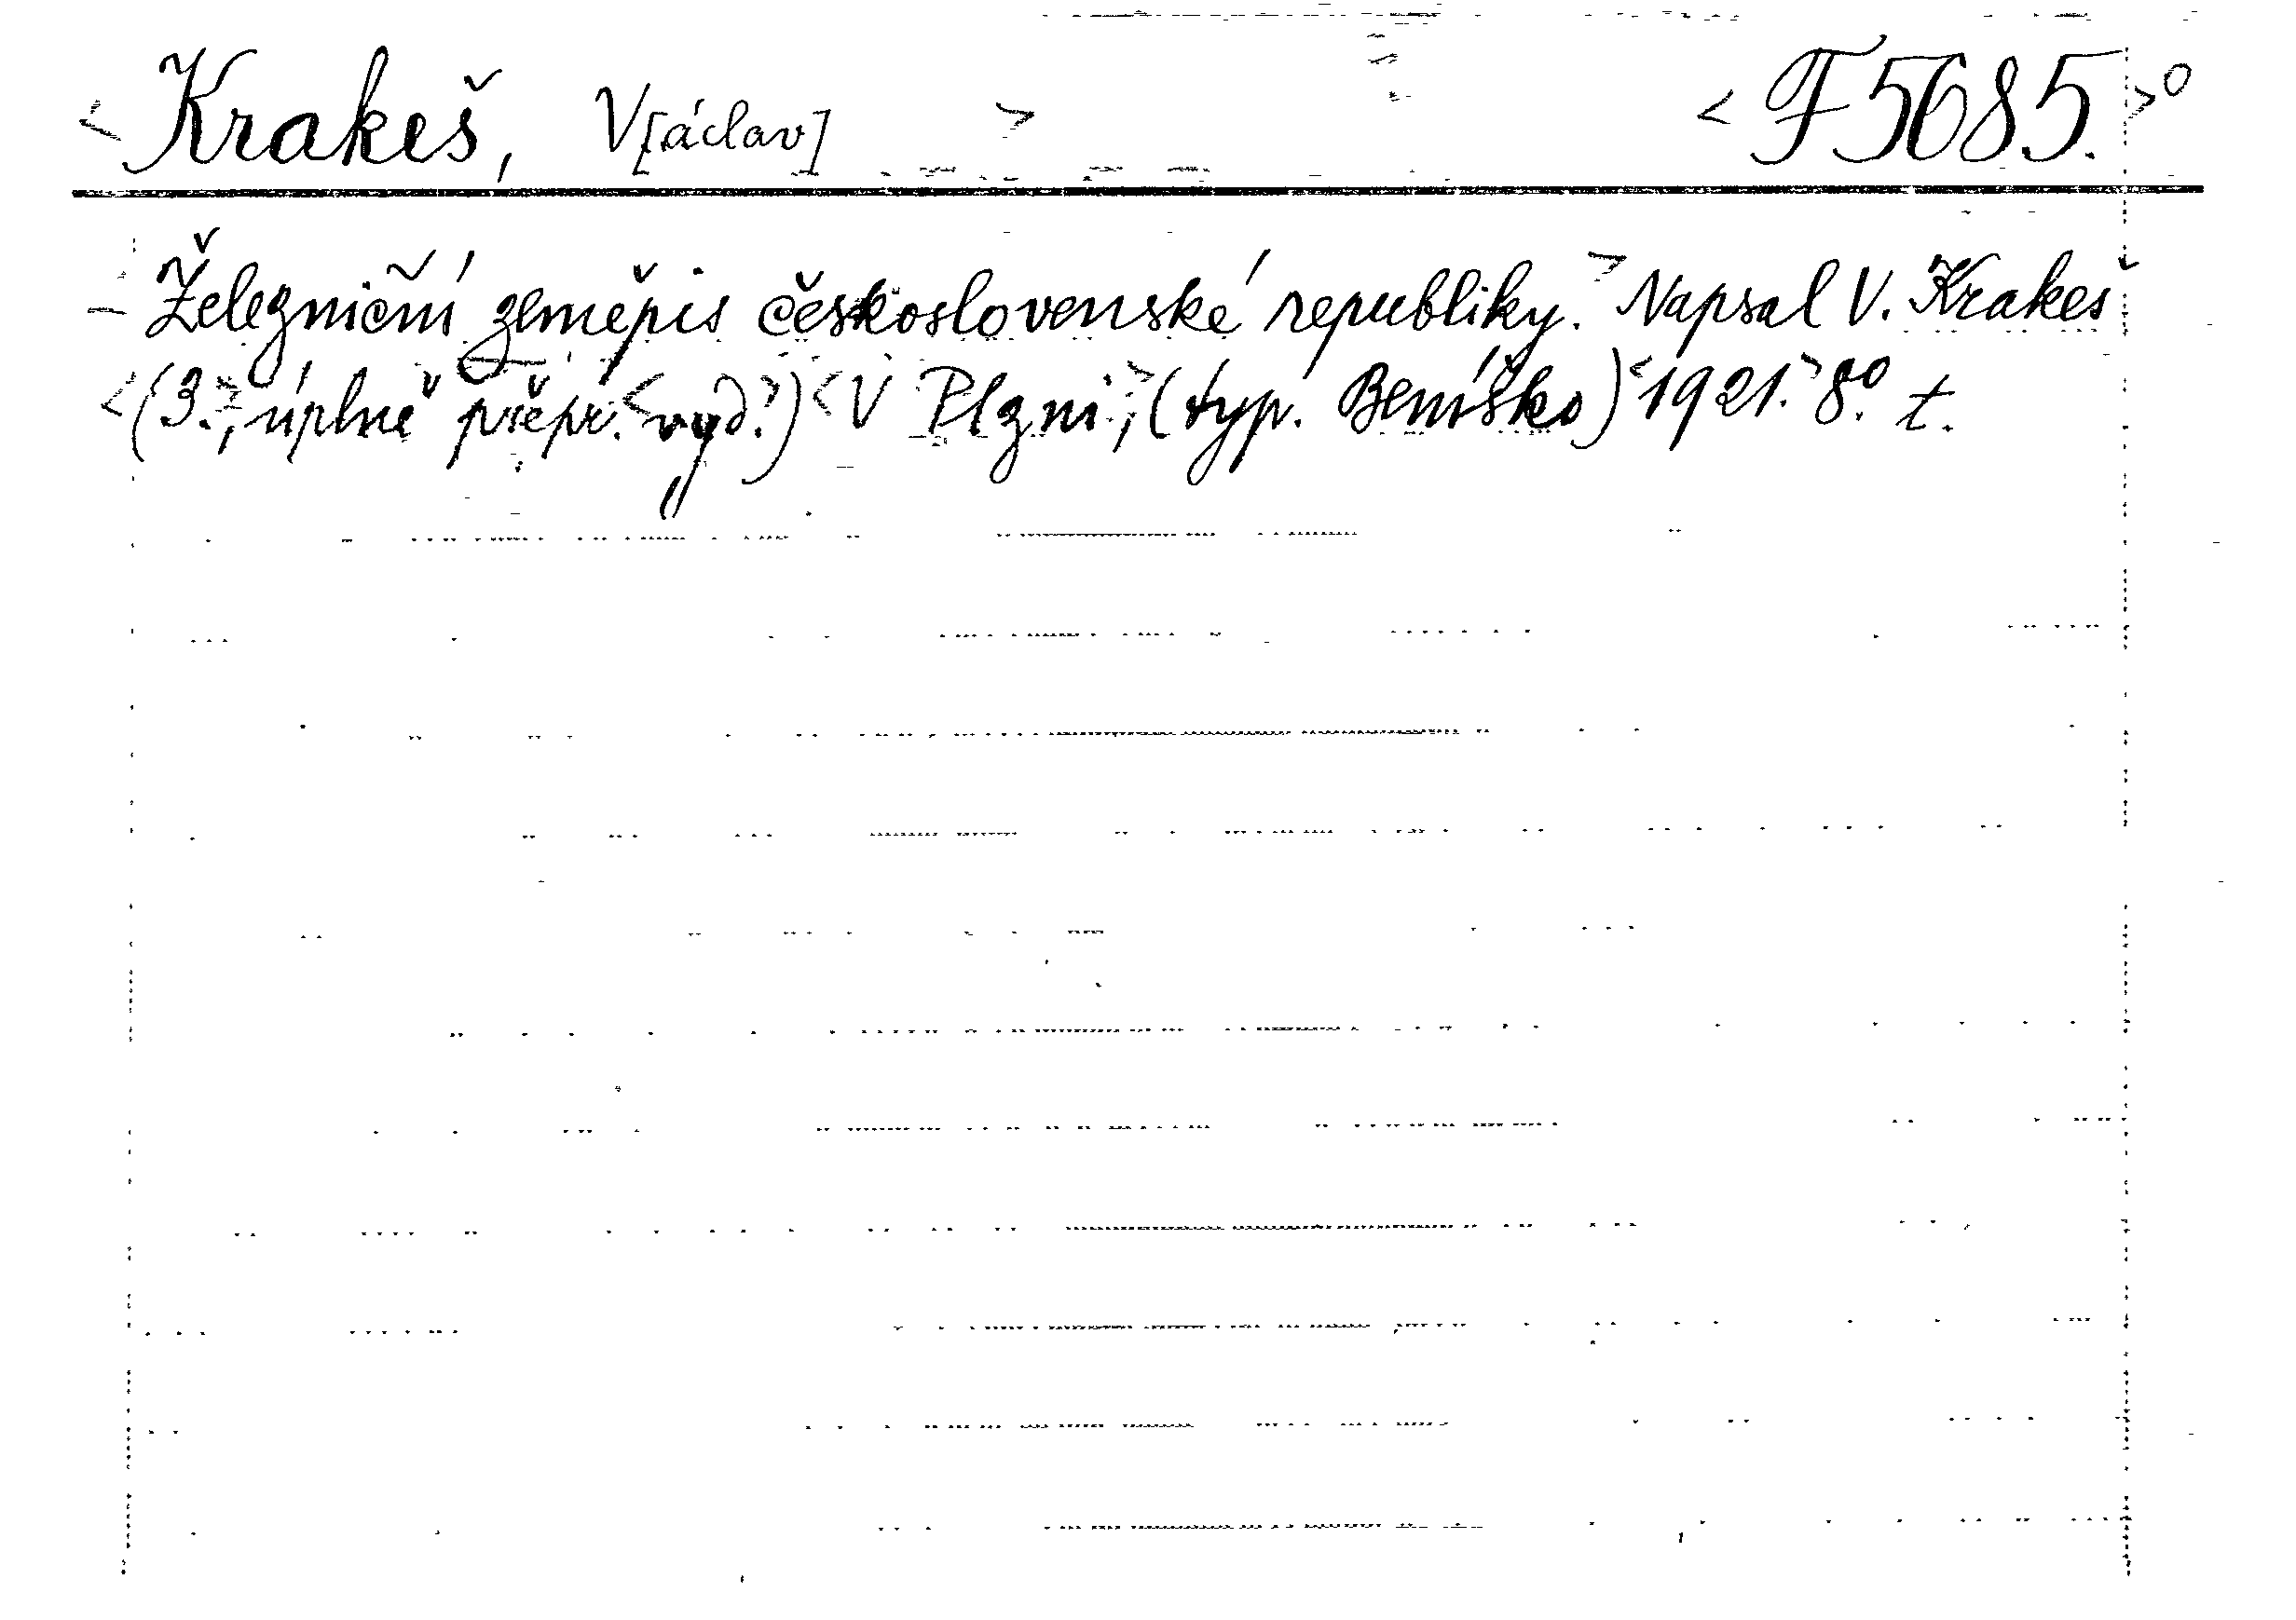 <Krakeš, V[áclav]> <F 5685.>°
Železniční zeměpis československé republiky.> Napsal V. Krakeš
<(3.>, úplně přepr. <vyd.>) <V Plzni,> (typ. Beníško) <1921.> 8°. t.